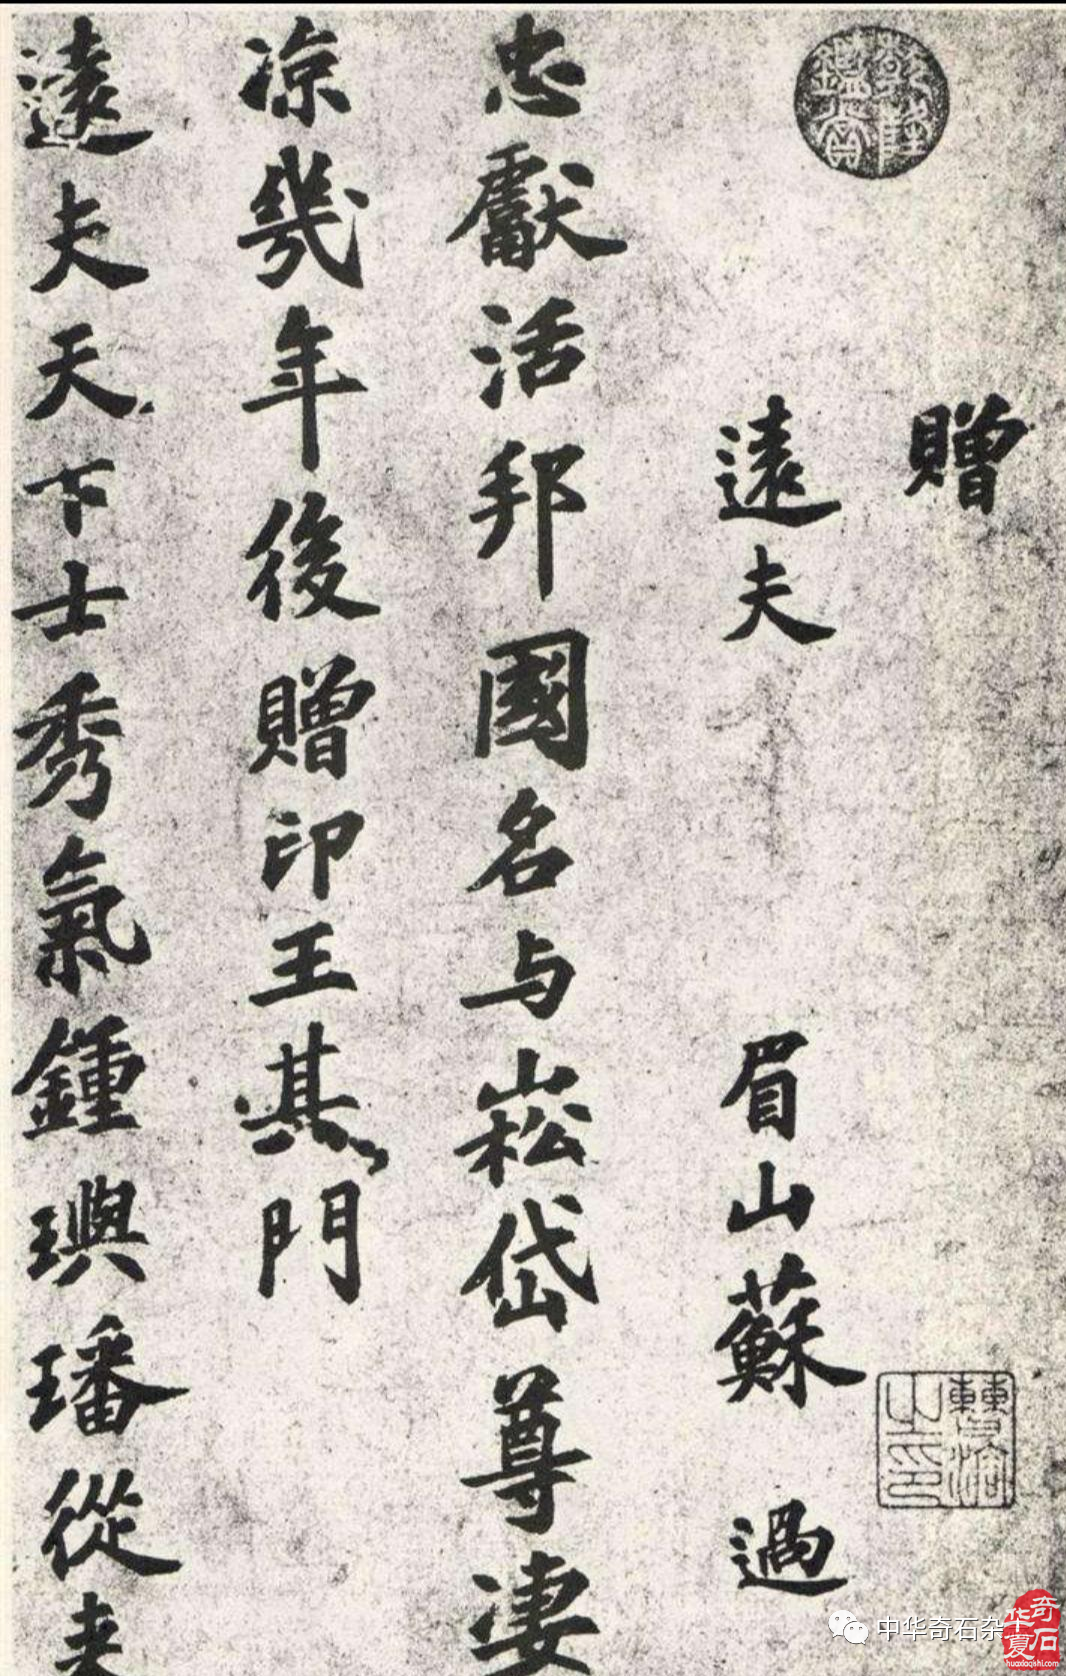 贈
遠夫 眉山蘇過
忠獻活邦國名与崧岱尊凄
凉幾年後贈印王其門
遠夫天下士秀氣鍾璵璠從来
乾隆鑑賞
中华奇石杂
华夏奇石
huaxiaqishi.com